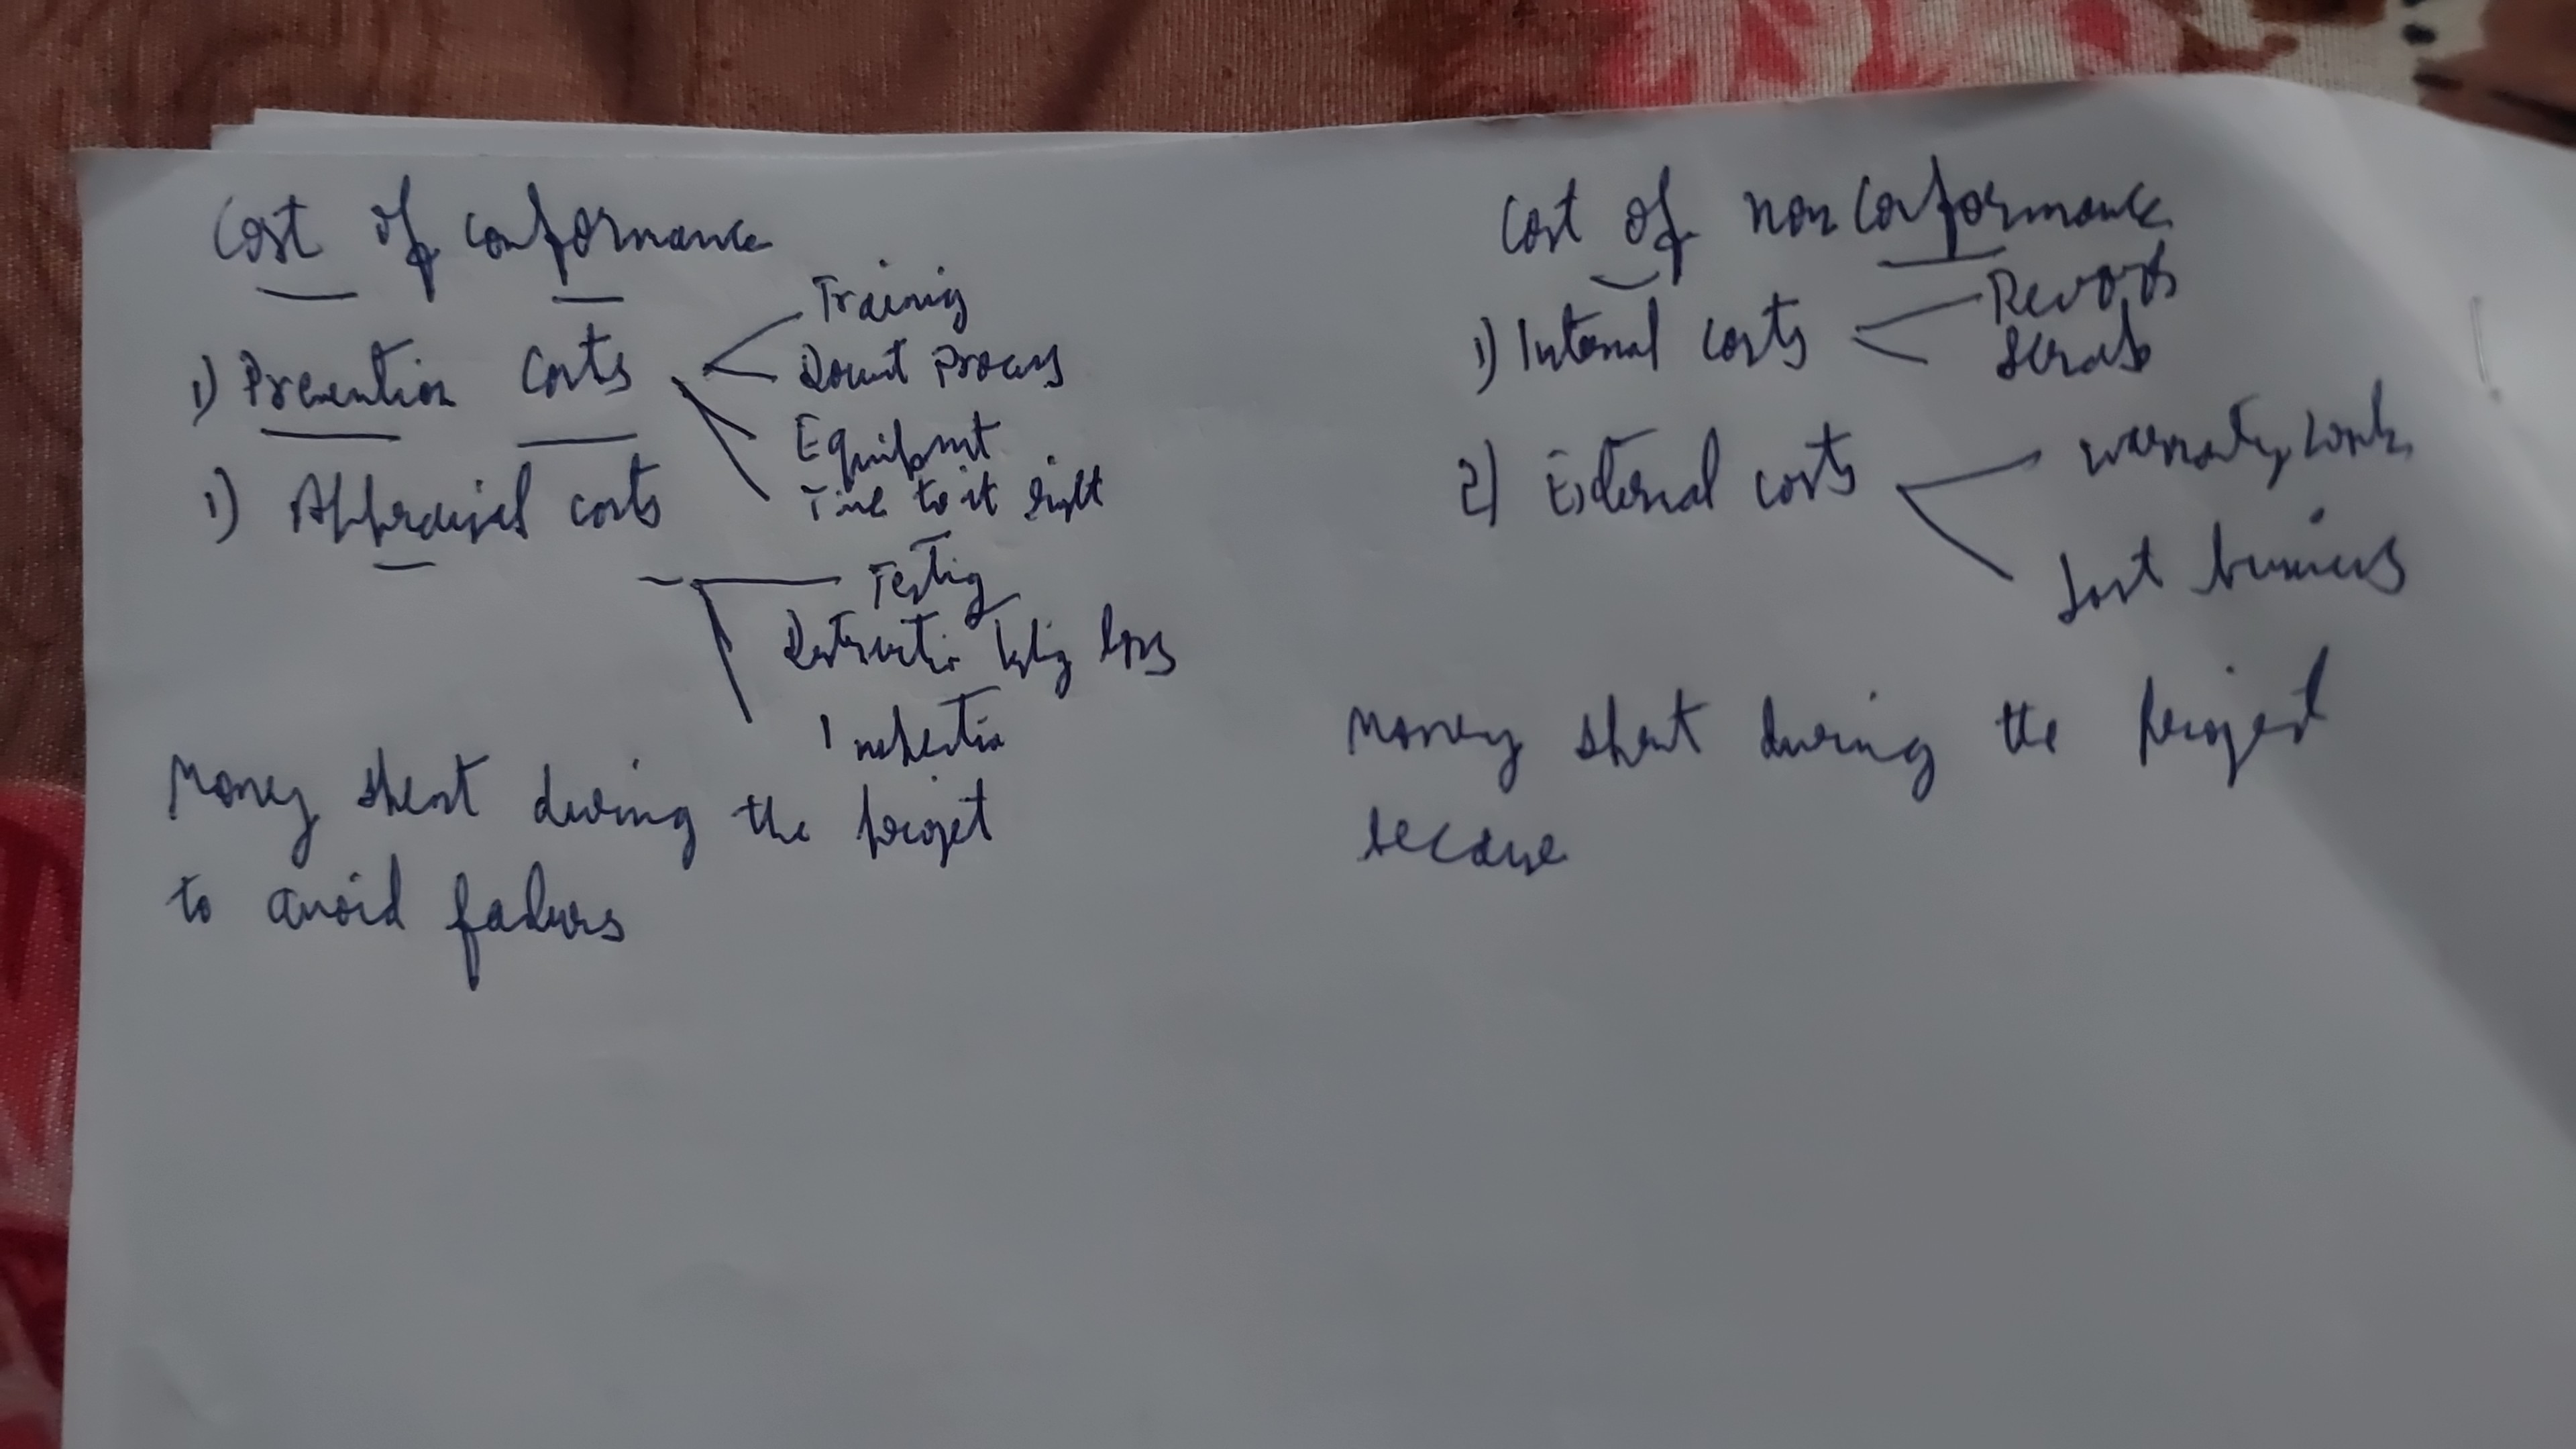 Cost of conformance
1) Prevention costs
Training
Docut Process
Equipment
Time to it right
1) Appraisal costs
Testing
Destructive testing loss
Inspection
Money spent during the project
to avoid failures
Cost of non conformance
1) Internal costs
Rework
Scrap
2) External costs
warranty work
Lost business
Money spent during the project
because